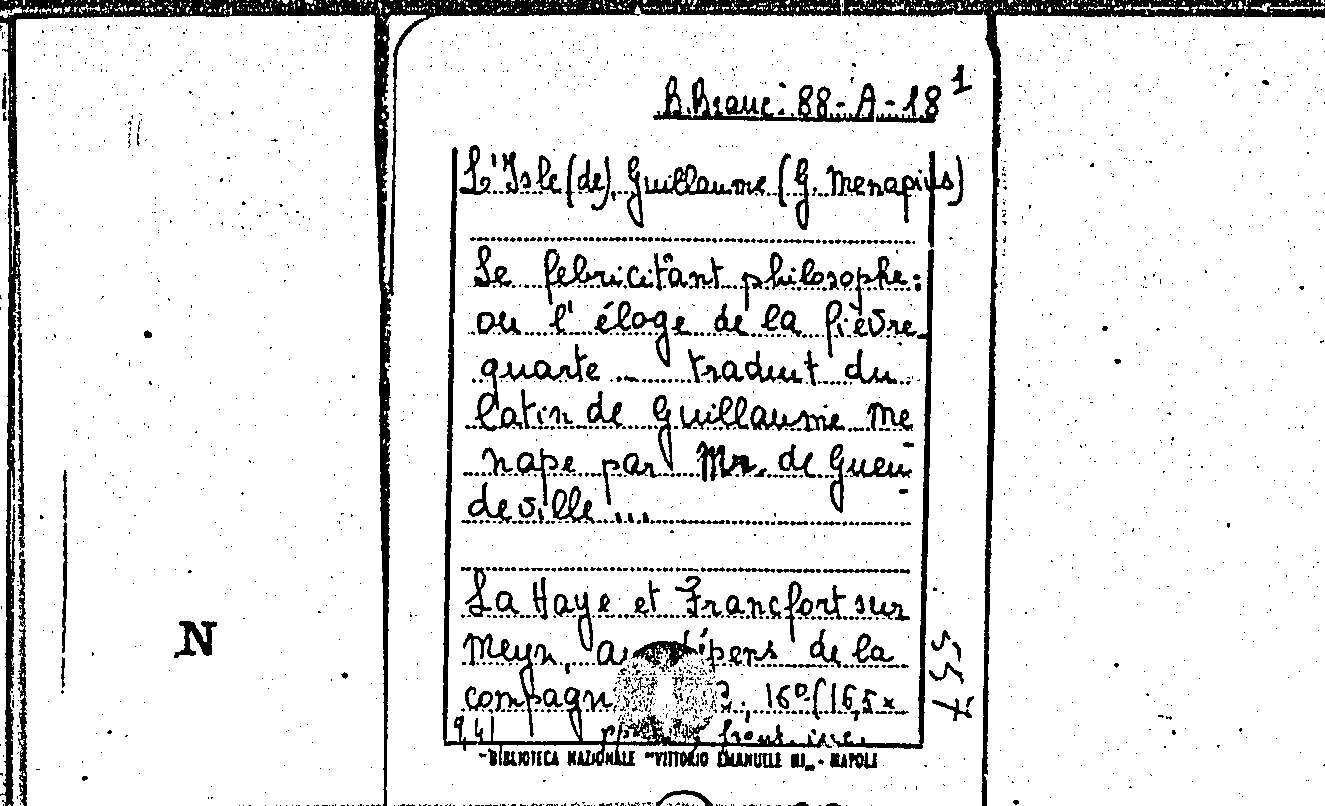 B. Branc: 88-A-18 1
L'Isle (de), Guillaume (G. Menapius)
Le fébricitant philosophe:
ou l'éloge de la fièvre
quarte ... traduit du
latin de Guillaume Me
nape par Mr. de Gueu-
deville ...
La Haye et Francfort sur
Meyn, dépens de la
16° (16,5x
9,4)
557
N
BIBLIOTECA NAZIONALE "VITTORIO EMANUELE III" - NAPOLI